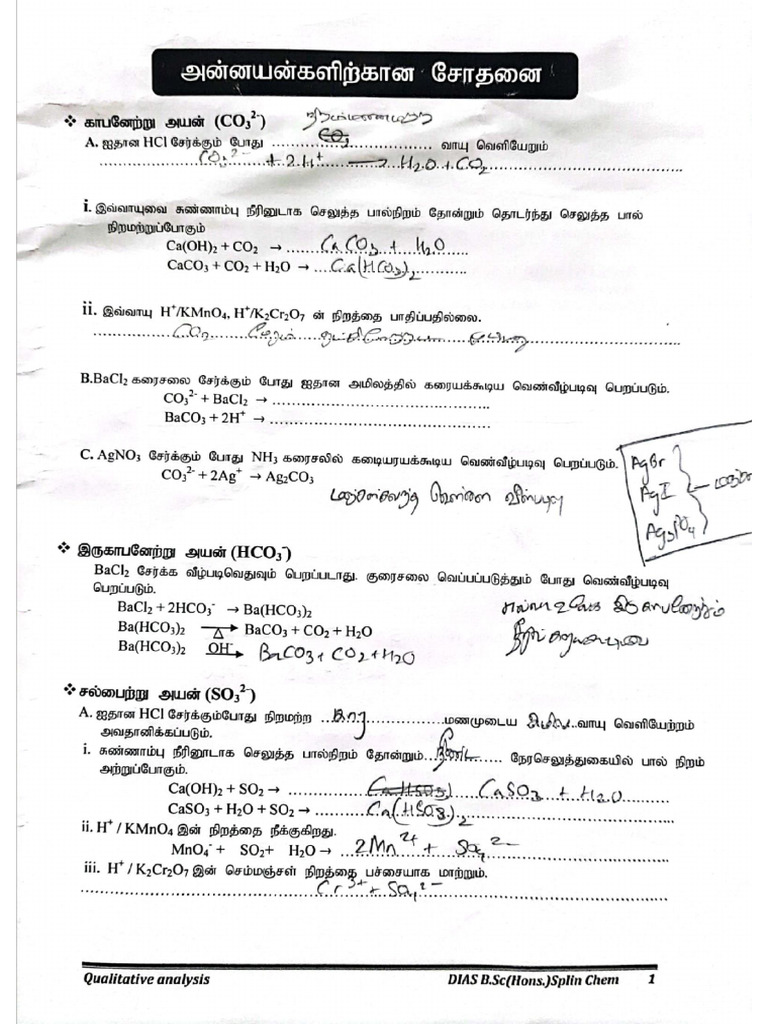 அன்னயன்களிற்கான சோதனை
❖ காபனேற்று அயன் (CO₃²⁻)
A. ஐதான HCl சேர்க்கும் போது .............................. வாயு வெளியேறும்
CO₃²⁻ + 2H⁺ → H₂O + CO₂
i. இவ்வாயுவை சுண்ணாம்பு நீரினுடாக செலுத்த பால்நிறம் தோன்றும் தொடர்ந்து செலுத்த பால்
நிறமற்றுப்போகும்
Ca(OH)₂ + CO₂ → CaCO₃ + H₂O
CaCO₃ + CO₂ + H₂O → Ca(HCO₃)₂
ii. இவ்வாயு H⁺/KMnO₄, H⁺/K₂Cr₂O₇ ன் நிறத்தை பாதிப்பதில்லை.
CO₂
B.BaCl₂ கரைசலை சேர்க்கும் போது ஐதான அமிலத்தில் கரையக்கூடிய வெண்வீழ்படிவு பெறப்படும்.
CO₃²⁻ + BaCl₂ → ..........................................
BaCO₃ + 2H⁺ → ..........................................
C. AgNO₃ சேர்க்கும் போது NH₃ கரைசலில் கடையரயக்கூடிய வெண்வீழ்படிவு பெறப்படும்.
CO₃²⁻ + 2Ag⁺ → Ag₂CO₃
AgBr
AgI
Ag₃PO₄
❖ இருகாபனேற்று அயன் (HCO₃⁻)
BaCl₂ சேர்க்க வீழ்படிவெதுவும் பெறப்படாது. குரைசலை வெப்பப்படுத்தும் போது வெண்வீழ்படிவு
பெறப்படும்.
BaCl₂ + 2HCO₃⁻ → Ba(HCO₃)₂
Ba(HCO₃)₂ →Δ BaCO₃ + CO₂ + H₂O
Ba(HCO₃)₂ OH⁻→ BaCO₃ + CO₂ + H₂O
❖ சல்பைற்று அயன் (SO₃²⁻)
A. ஐதான HCl சேர்க்கும்போது நிறமற்ற .................. மணமுடைய .......... வாயு வெளியேற்றம்
அவதானிக்கப்படும்.
i. சுண்ணாம்பு நீரினூடாக செலுத்த பால்நிறம் தோன்றும் நீண்ட நேரசெலுத்துகையில் பால் நிறம்
அற்றுப்போகும்.
Ca(OH)₂ + SO₂ → CaSO₃ + H₂O
CaSO₃ + H₂O + SO₂ → Ca(HSO₃)₂
ii. H⁺ / KMnO₄ இன் நிறத்தை நீக்குகிறது.
MnO₄⁻ + SO₂+ H₂O → 2Mn²⁺ + SO₄²⁻
iii. H⁺ / K₂Cr₂O₇ இன் செம்மஞ்சள் நிறத்தை பச்சையாக மாற்றும்.
Cr³⁺ + SO₄²⁻
Qualitative analysis DIAS B.Sc(Hons.)Splin Chem 1